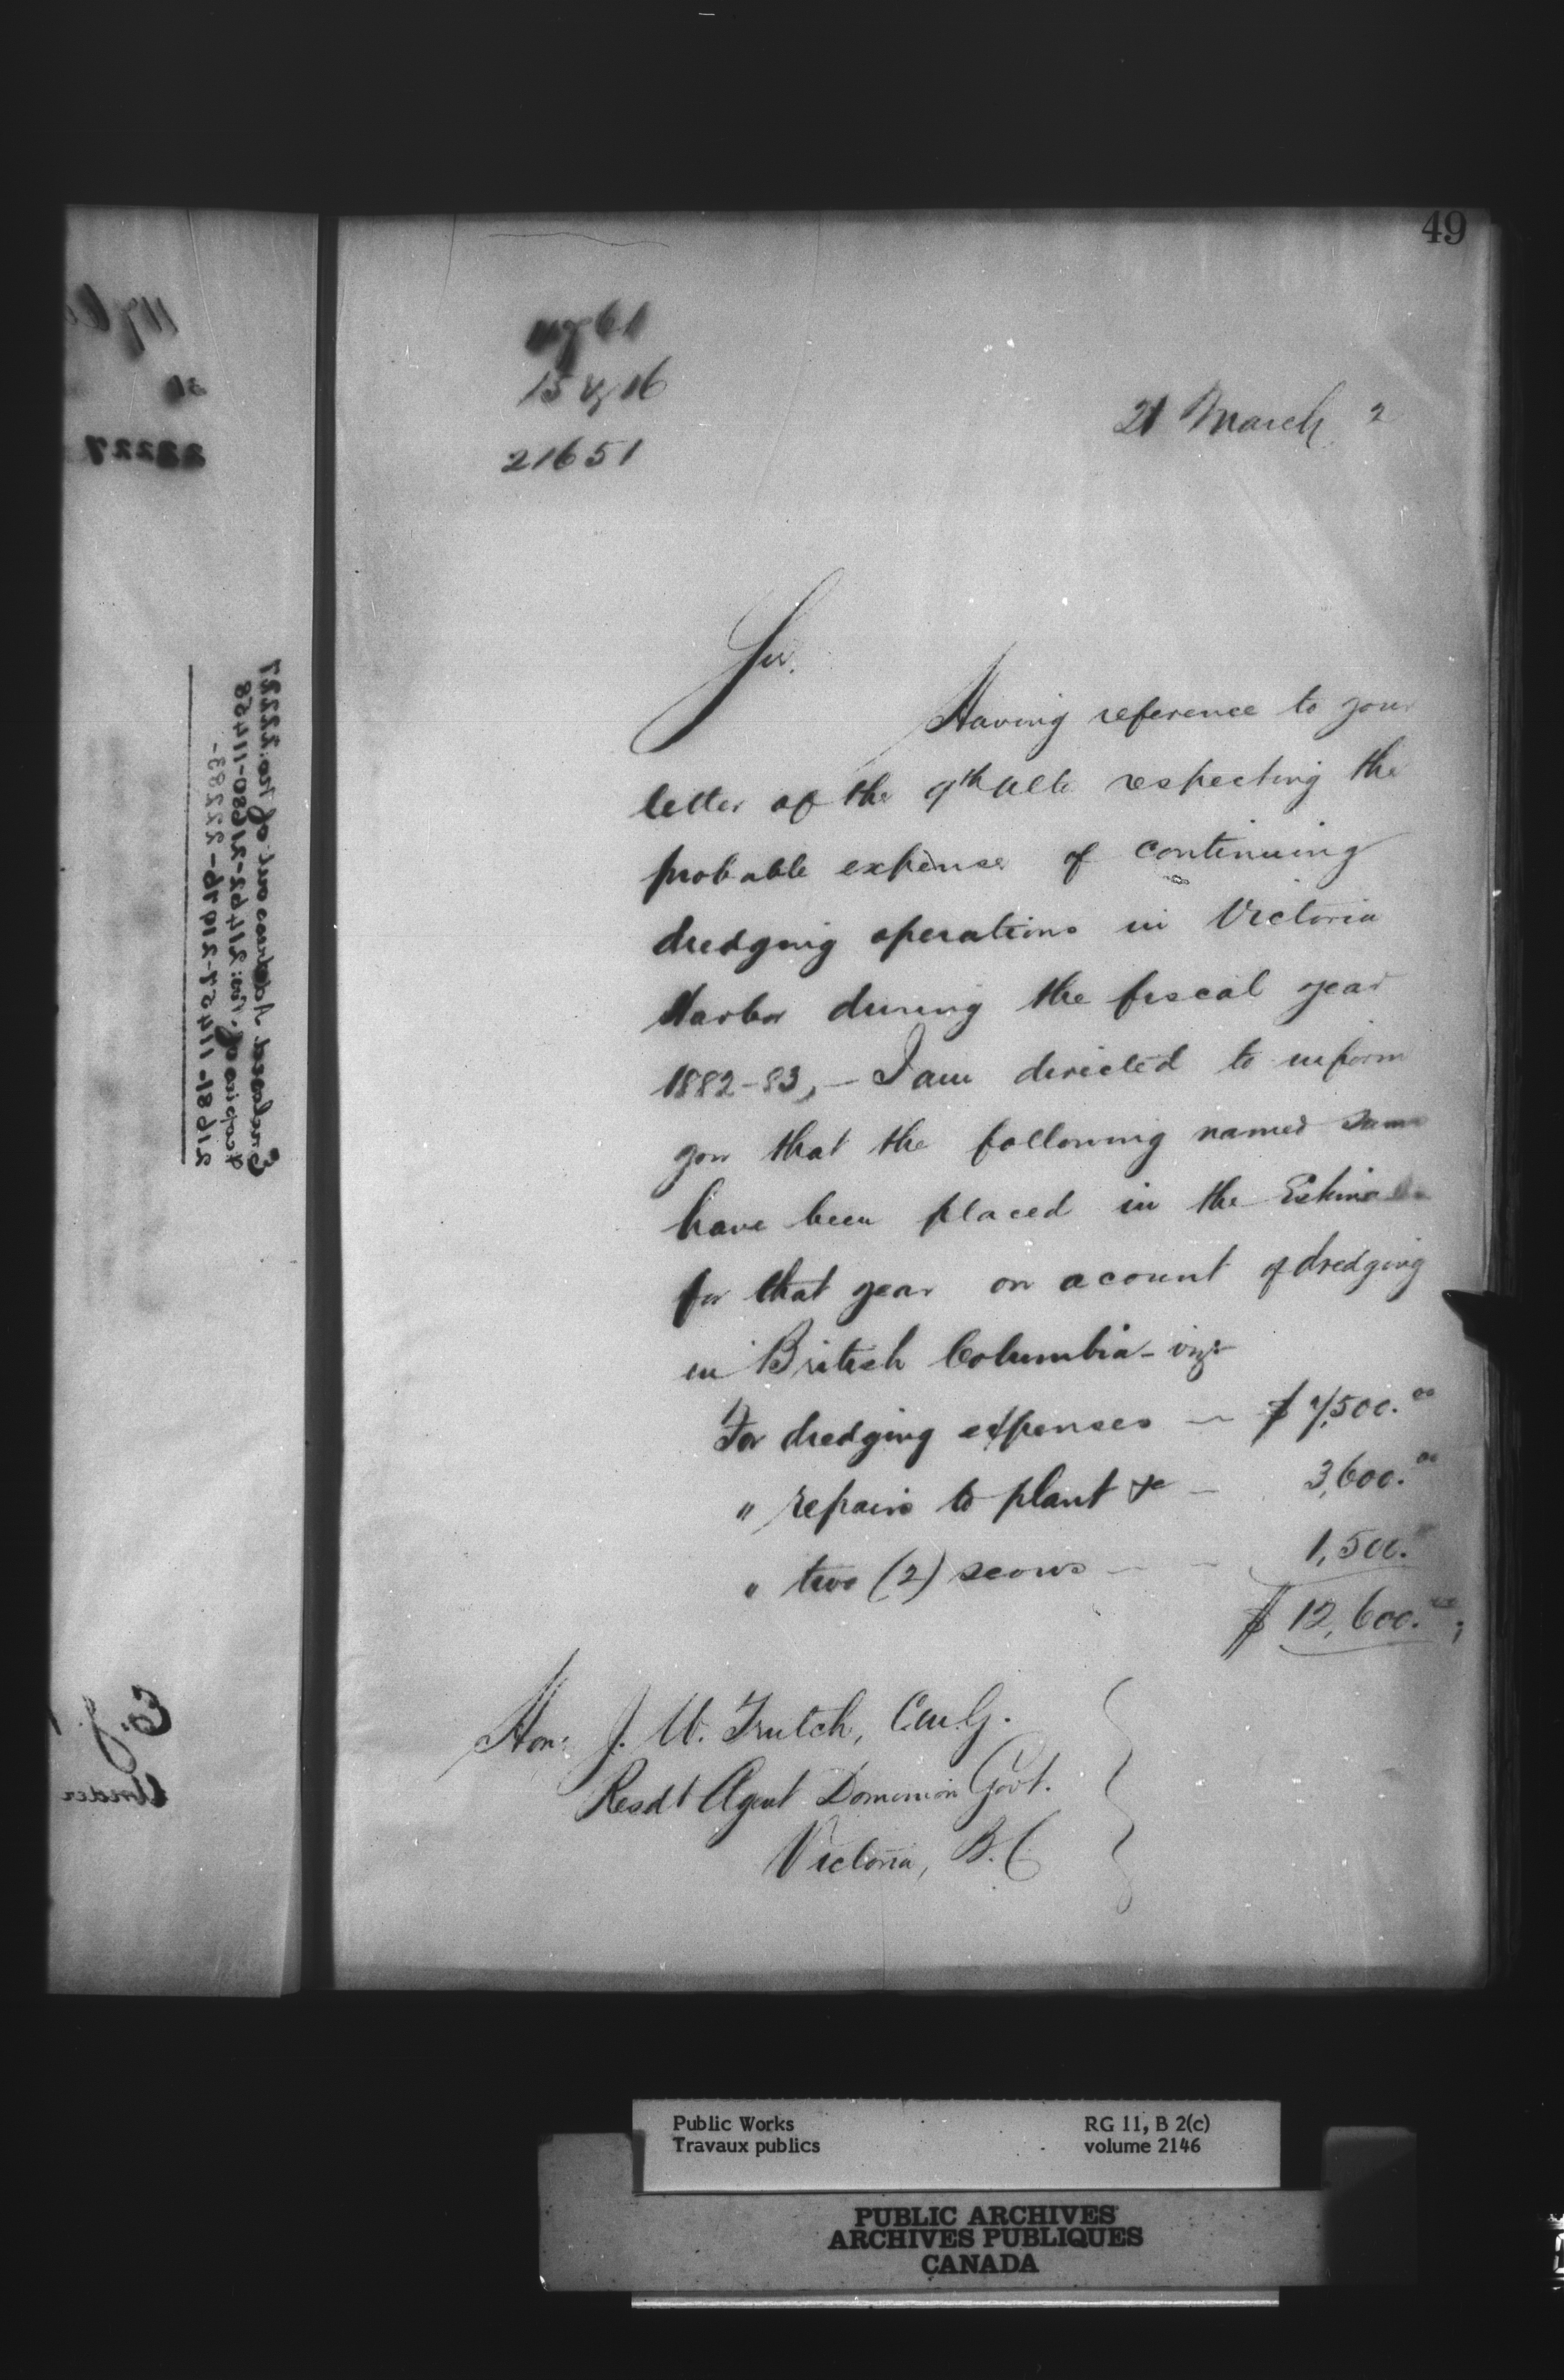 49
21651
21 March 2
Sir.
Having reference to your
letter of the 9th ulto respecting the
probable expense of continuing
dredging operations in Victoria
Harbor during the fiscal year
1882-83, - I am directed to inform
you that the following named sums
have been placed in the Estimates
for that year on acount of dredging
in British Columbia - viz:-
For dredging expenses - $ 7,500.00
" repairs to plant &c - 3,600.00
" two (2) scows - - 1,500.00
$ 12,600.00;
Hon: J. W. Trutch, C.M.G.
Resdt Agent Dominion Govt.
Victoria, B.C
22227
Enclosed Accounts for No: 22227
& copies of No: 21492-21080-11458
21681-11457-21676-22283-
E. J.
Under
Public Works
Travaux publics
RG 11, B 2(c)
volume 2146
PUBLIC ARCHIVES
ARCHIVES PUBLIQUES
CANADA